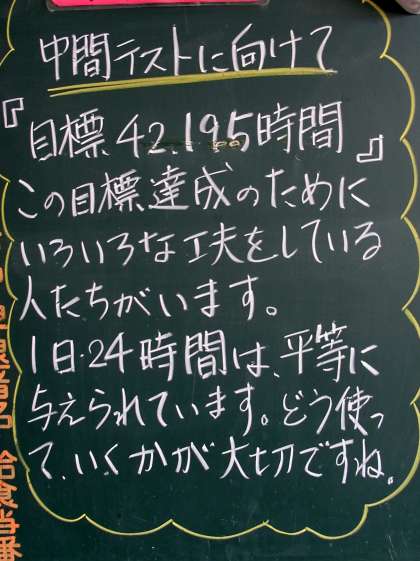 中間テストに向けて
『目標42.195時間』
この目標達成のために
いろいろな工夫をしている
人たちがいます。
1日・24時間は、平等に
与えられています。どう使っ
て、いくかが大切ですね。
給食当番